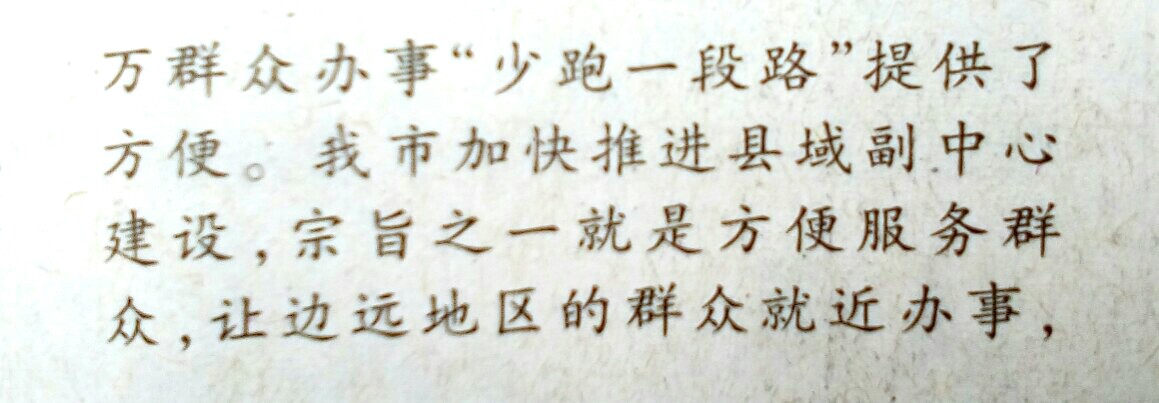 万群众办事“少跑一段路”提供了
方便。我市加快推进县域副中心
建设,宗旨之一就是方便服务群
众,让边远地区的群众就近办事,